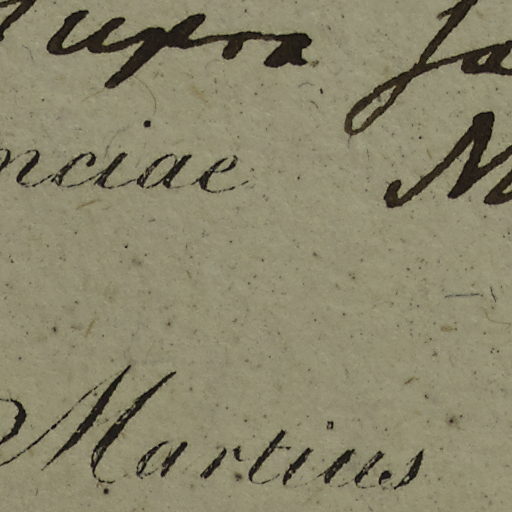 supra fa
nciae M
Martius